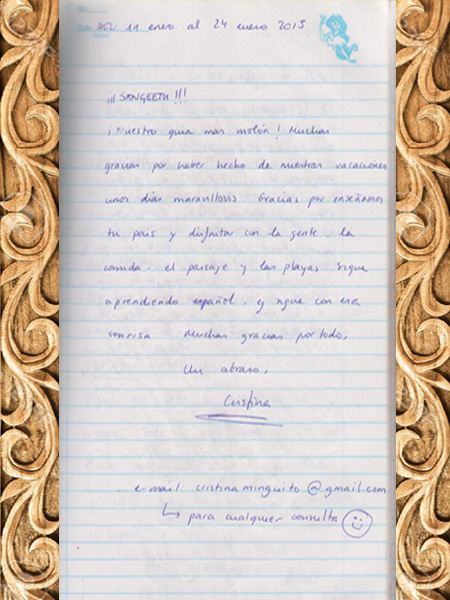 11 enero al 24 enero 2015
¡¡¡ SANGEETH !!!
¡ Nuestro guia mas molón ! Muchas
gracias por haber hecho de nuestras vacaciones
unos días maravillosos Gracias por enseñarnos
tu pais y disfrutar con la gente, la
comida, el paisaje y las playas. Sigue
aprendiendo español, y sigue con esa
sonrisa. Muchas gracias por todo,
Un abrazo,
Cristina
e-mail: cristinaminguito@gmail.com
↳ para cualquier consulta ☺